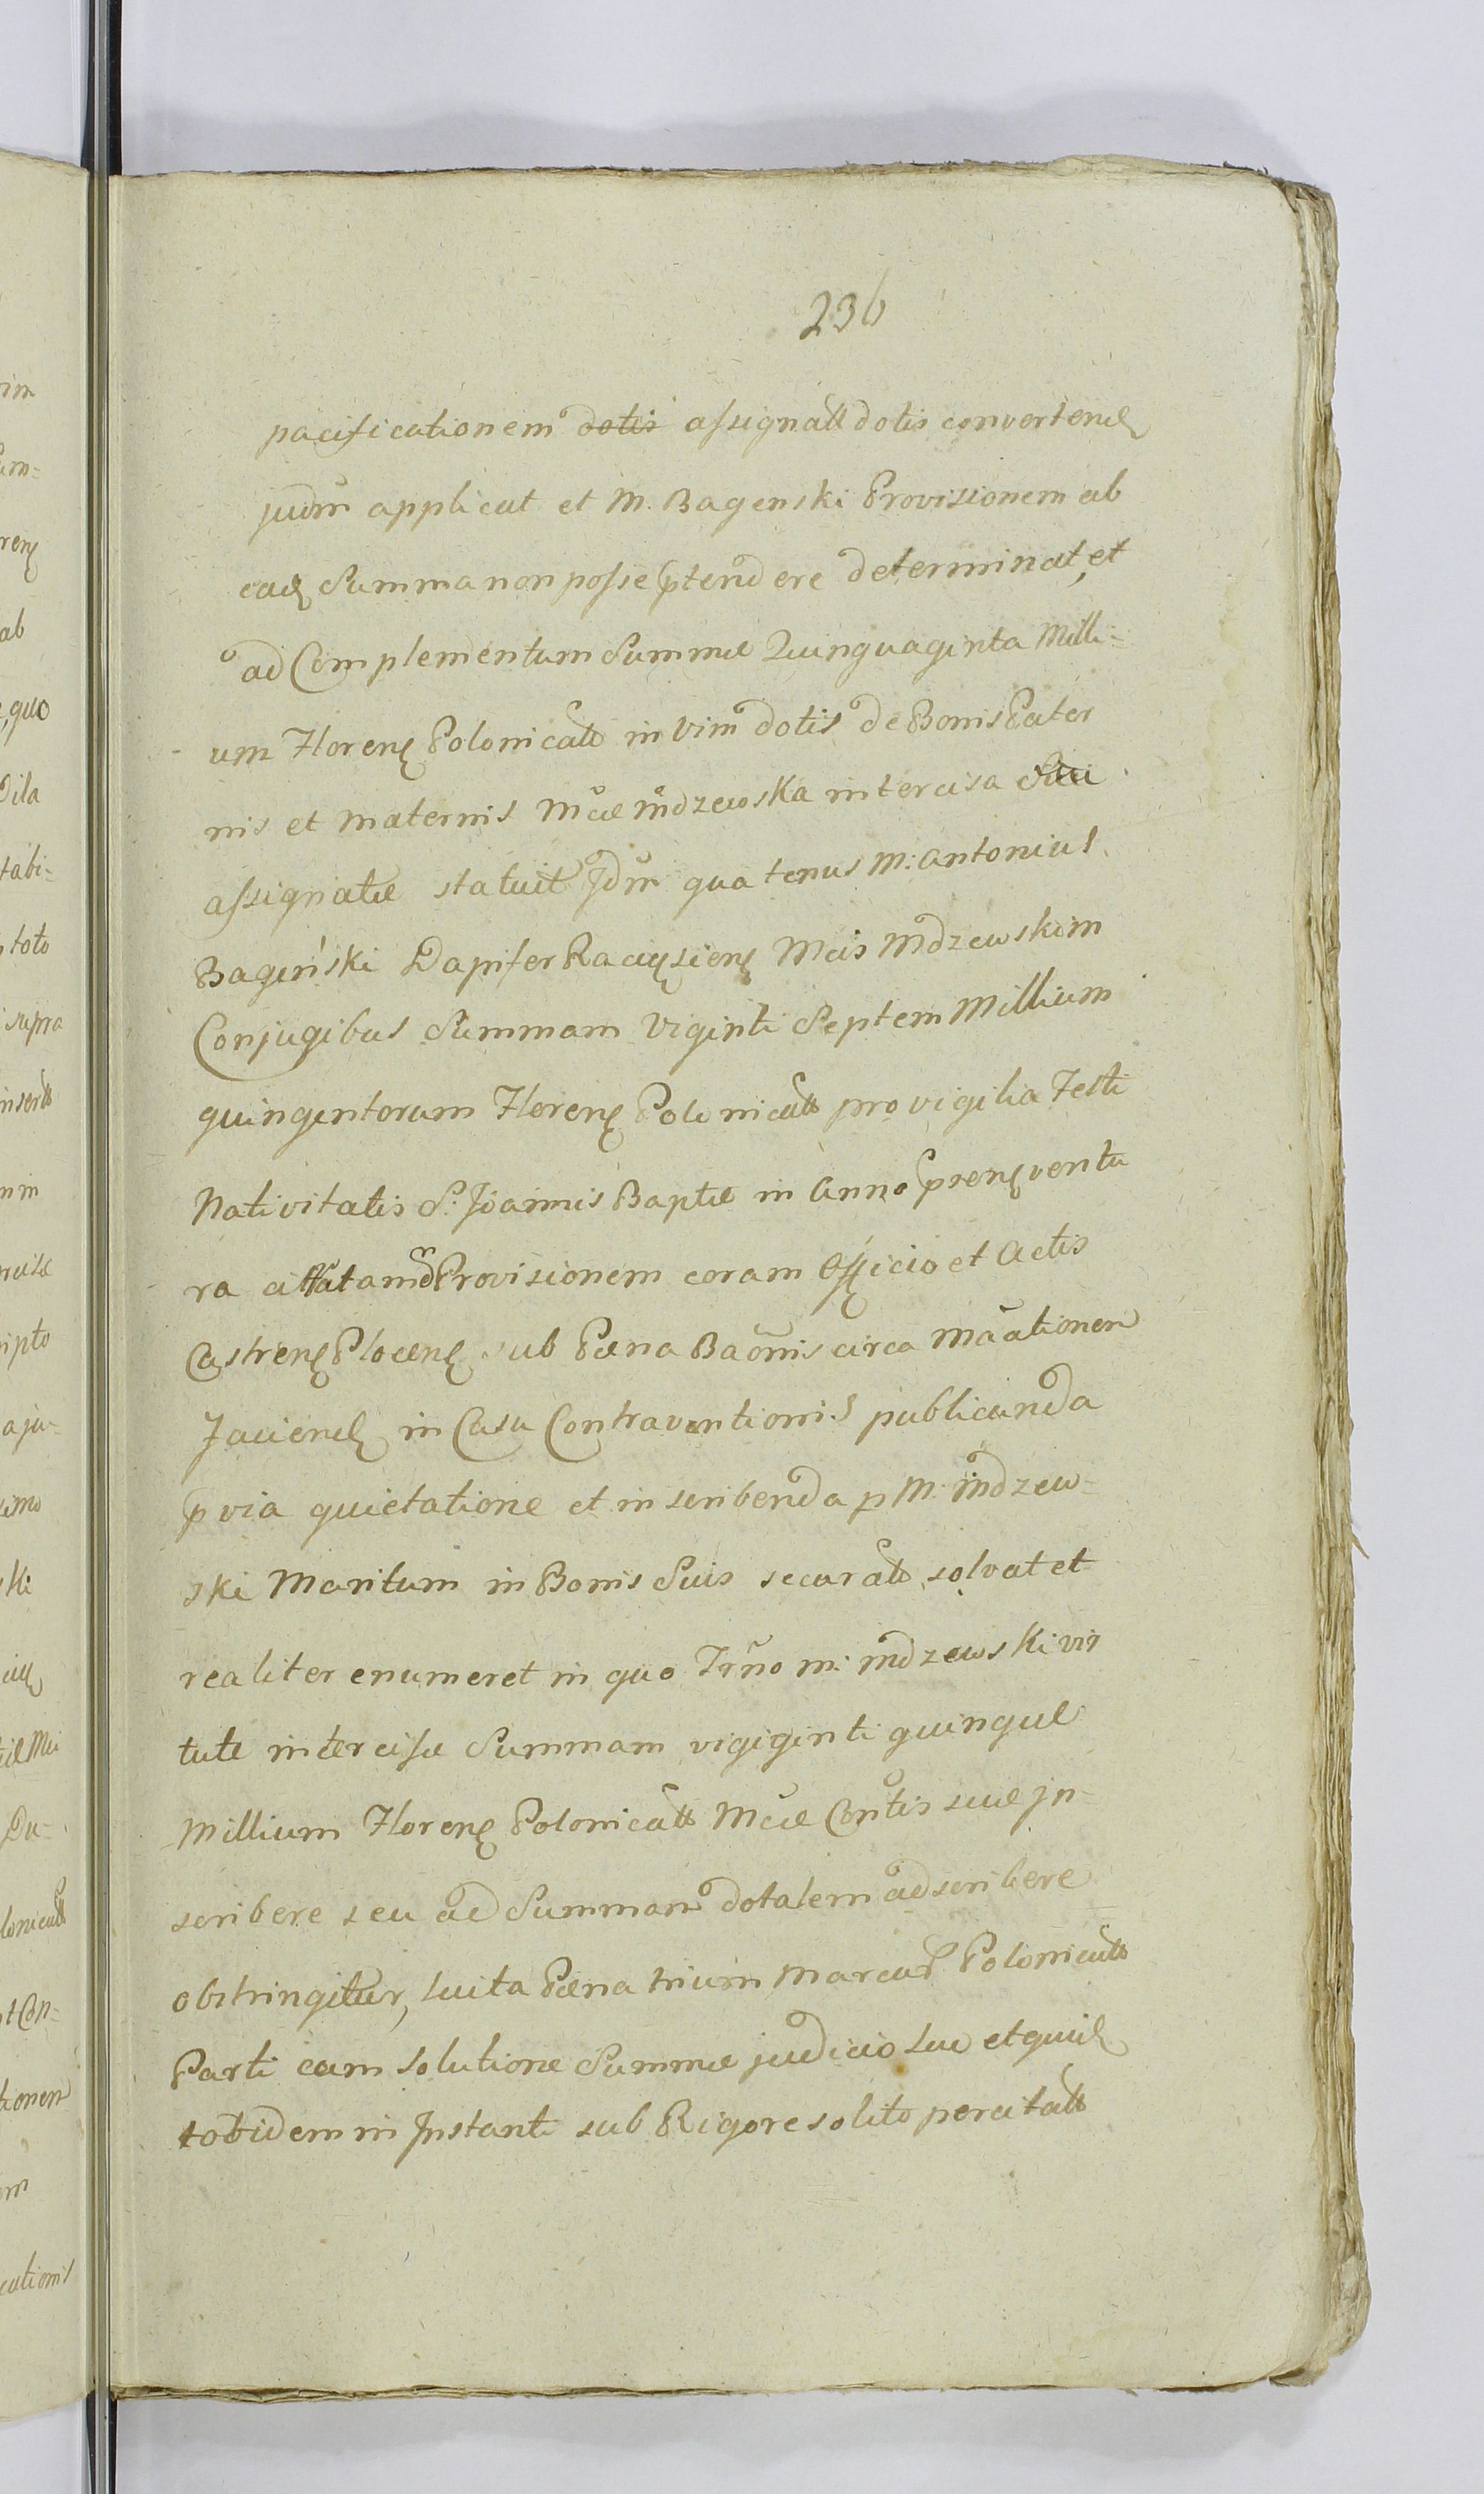 236
pacificationem dotis assignatt dotis convertend
judm applicat et M. Bagenski Provisionem ab
ead Summa non posse ptendere determinat, et
ad Complementum Summæ Quinquaginta Milli-
um Floren Polonicatt in Vim dotis de Bonis Pater
nis et Maternis Mcæ Mdzewska intercisa Sua
assignatæ statuit Jdm quatenus M: Antonius
Bagiński Dapifer Raciązien Mcis Mdzewskim
Conjugibus Summam Viginti Septem Millium
quingentorum Floren Polonicatt pro vigilia Festi
Nativitatis S: Joannis Baptæ in Anno pren ventu
ra Provisionem coram Officio et Actis
Castren Plocen sub Pæna Baõnis circa Mãationem
Faciend in Casu Contraventionis publicanda
pvia quietatione et inscribenda p M: Mdzew-
ski Maritum in Bonis Suis securatt solvat et
realiter enumeret in quo Trño M: Mdzewski vir
tute intercisæ Summam vigiginti quinque
Millium Floren Polonicatt Mcæ Contis suæ Jn-
scribere seu ad Summam dotalem adscribere
obstringitur, luita Pæna trium Marcar Polonicatt
Parti cum solutione Summæ judicio luo et quid
totidem in Jnstanti sub Rigore solito percitatt